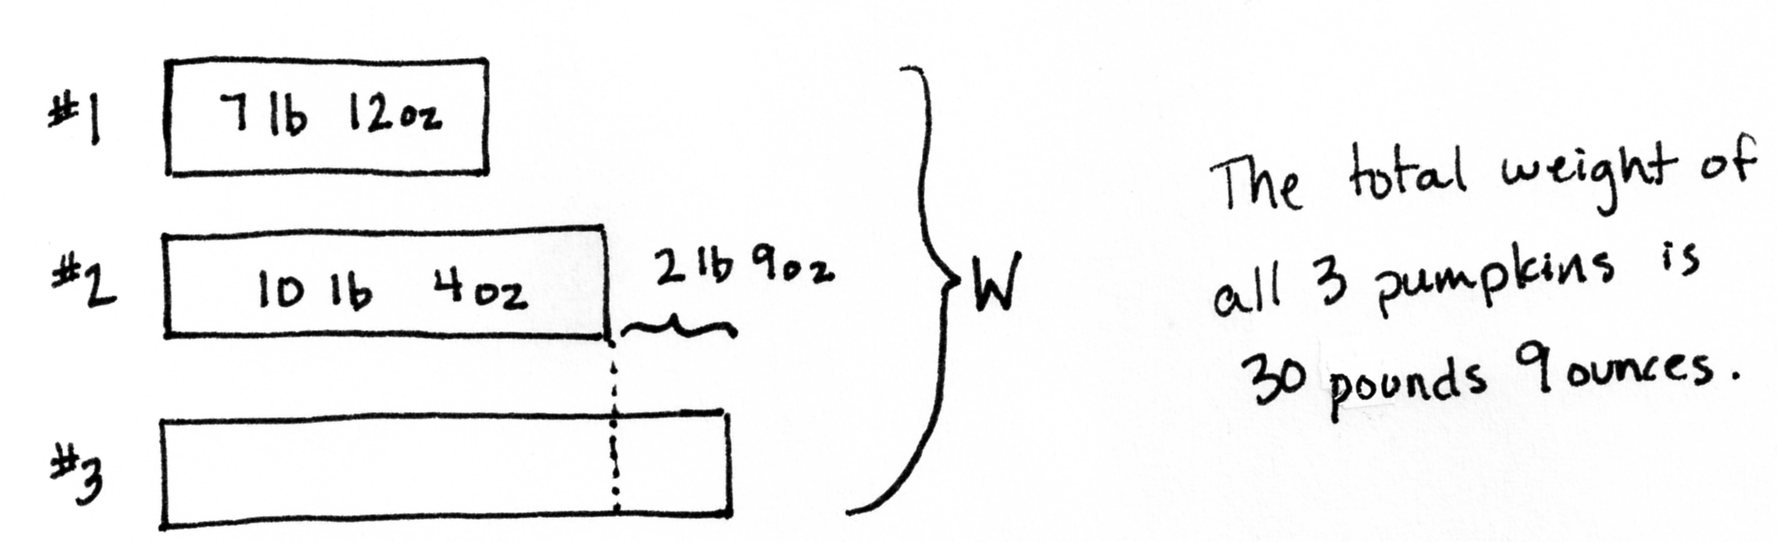 #1 7 lb 12oz
#2 10 lb 4oz 2 lb 9oz
#3
W
The total weight of
all 3 pumpkins is
30 pounds 9 ounces.